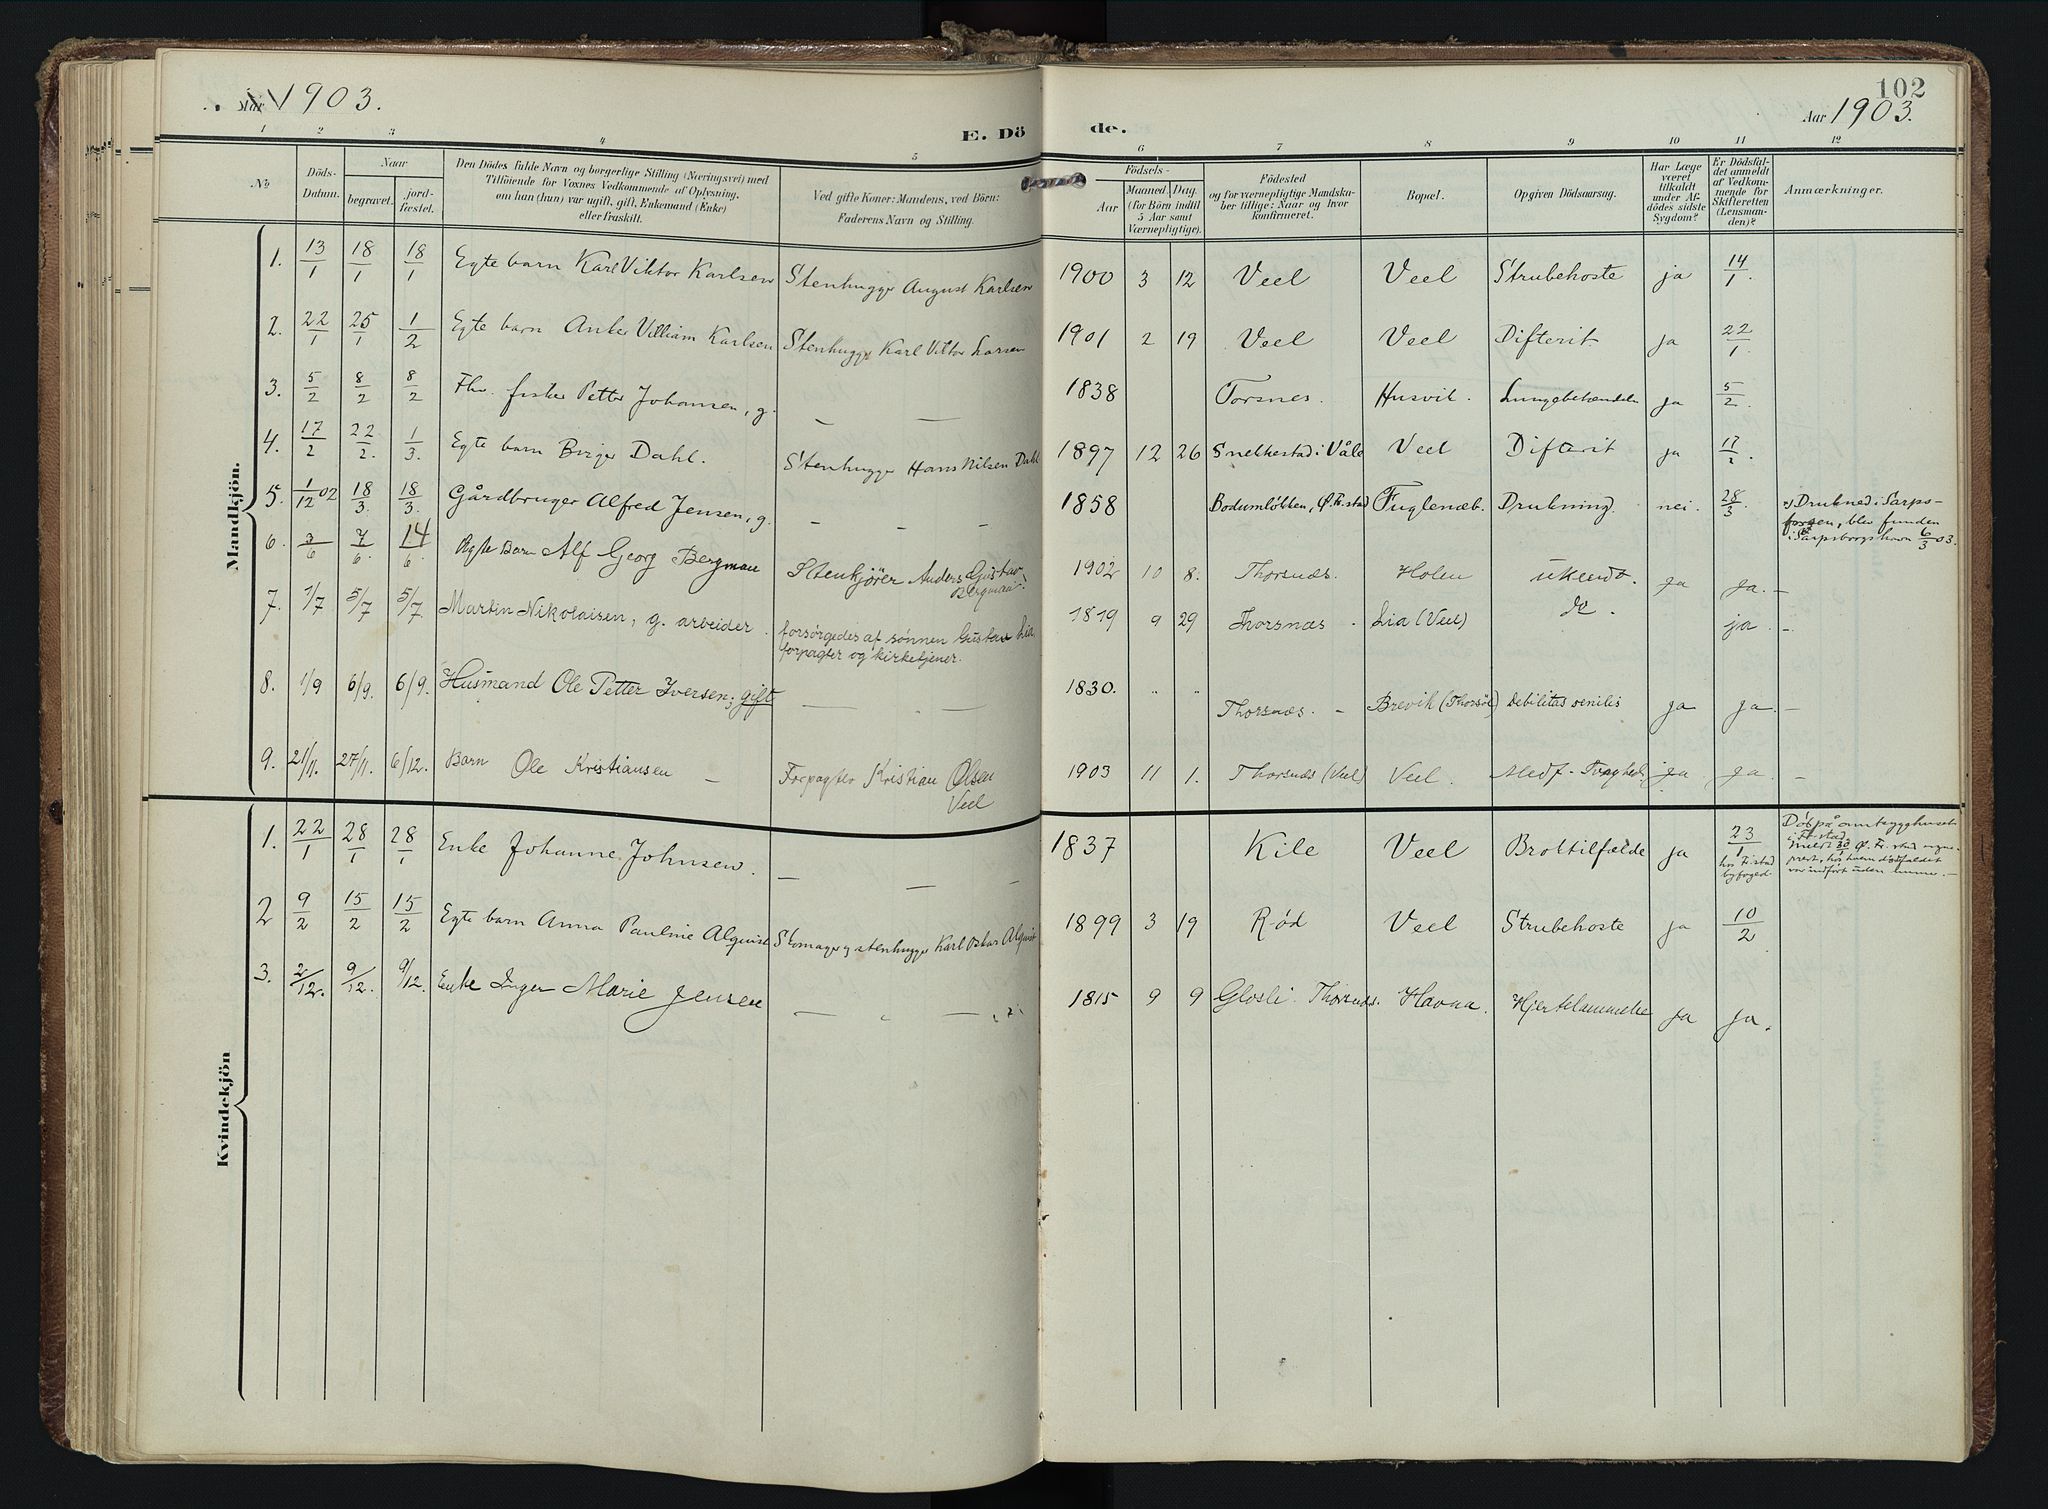 102
Aar 1903.
Aar 1903.
E. Dö de.
1 2 3 4 5 6 7 8 9 10 11 12
№
Döds-Datum.
Naar
begravet.
jord-fæstet.
Den Dödes fulde Navn og borgerlige Stilling (Næringsvei) med
Tilföiende for Voxnes Vedkommende af Oplysning,
om han (hun) var ugift, gift, Enkemand (Enke)
eller fraskilt.
Ved gifte Koner: Mandens, ved Börn:
Faderens Navn og Stilling.
Födsels-
Aar
Maaned. Dag.
(for Börn indtil
5 Aar samt
Værnepligtige).
Födested
og for værnepligtige Mandska-
ber tillige: Naar og hvor
konfirmeret.
Bopæl.
Opgiven Dödsaarsag.
Har Læge
været
tilkaldt
under Af-
dödes sidste
Sygdom?
Er Dödsfal-
det anmeldt
af Vedkom-
mende for
Skifteretten
(Lensman-
den)?
Anmærkninger.
Mandkjön.
1. 13/1 18/1 18/1 Egte barn Karl Viktor Karlsen Stenhugger August Karlsen 1900 3 12 Veel Veel Strubehoste ja 14/1.
2. 22/1 25/1 1/2 Egte barn Anker Villiam Karlsen Stenhugger Karl Viktor Larsen 1901 2 19 Veel Veel Difterit. ja 22/1.
3. 5/2 8/2 8/2 Fhv. fisker Petter Johansen, g. — — 1838 Torsnes. Husvik. Lungebetændelse ja 5/2.
4. 17/2 22/2. 1/3. Egte barn Birger Dahl. Stenhugger Hans Nilsen Dahl 1897 12 26 Snelkestad i Våle Veel Difterit ja 17/2.
5. 1/12 02 18/3. 18/3. Gårdbruger Alfred Jensen, g. — — 1858 Bodumløkken, Ø. Fr.stad Fuglenæb. Drukning. nei. 28/3.
Drukned i Sarps-
fossen, blev funden
i Sarpsborgs havn 6/3 03.
6. 3/6 7/6. 14/6. Ægte Barn Alf Georg Bergman Stenkjører Anders Gustav
Bergman. 1902 10 8. Thorsnæs. Holen ukendt. ja ja. —
7. 1/7 5/7 5/7 Martin Nikolaisen, g. arbeider. forsørgedes af sønnen Gustav Lia,
forpagter og kirketjener. 1819 9 29 Thorsnæs - Lia (Veel) do. ja. —
8. 1/9 6/9. 6/9. Husmand Ole Petter Iversen; gift — — 1830. " " Thorsnæs. - Brevik (Thorsö) Debilitas senilis ja ja. —
9. 21/11. 27/11. 6/12. Barn Ole Kristiansen — Forpagter Kristian Olsen
Veel 1903 11 1. Thorsnæs (Veel) Veel. Medf. Svaghed ja. ja. —
Kvindekjön
1. 22/1 28/1 28/1 Enke Johanne Johnsen. — — — 1837 Kile Veel Brottilfælde ja 23/1
hos Fr.stad
byfoged.
Død på amtssyghuset
i Fr.stad.
var indført uden numer. —
2 9/2 15/2 15/2 Egte barn Anna Pauline Alquist Skomager og stenhugger Karl Oskar Alquist 1899 3 19 Rød Veel Strubehoste ja 10/2
3. 2/12. 9/12. 9/12. Enke Inger Marie Jensen — " — 1815 9 9 Glosli. Thorsnæs. Havna. Hjertelammelse ja ja.